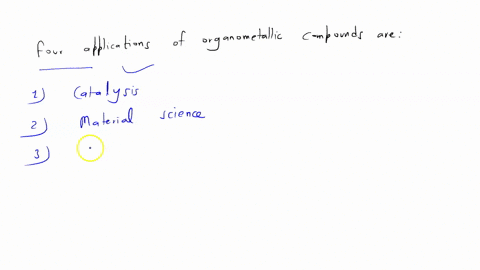 Four applications of organometallic compounds are:
1) Catalysis
2) Material science
3)